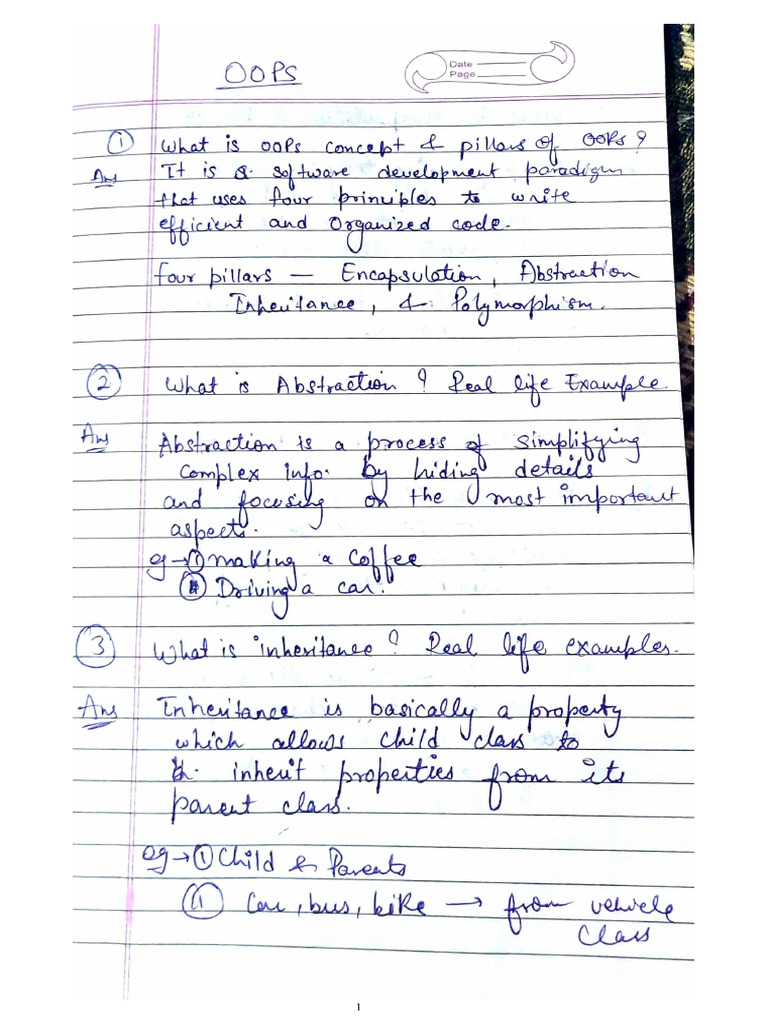 OOPS
Date
Page
① What is OOPs concept & pillars of OOPs?
Ans It is a software development paradigm
that uses four principles to write
efficient and Organized code.
four pillars — Encapsulation, Abstraction
Inheritance, & Polymorphism.
② What is Abstraction? Real life Example.
Ans Abstraction is a process of simplifying
complex info. by hiding details
and focusing on the most important
aspects.
eg → ① Making a coffee
② Driving a car.
③ What is inheritance? Real life examples.
Ans Inheritance is basically a property
which allows child class to
inherit properties from its
parent class.
eg → ① Child & Parents
⑪ Car, bus, bike → from vehicle
Class
1